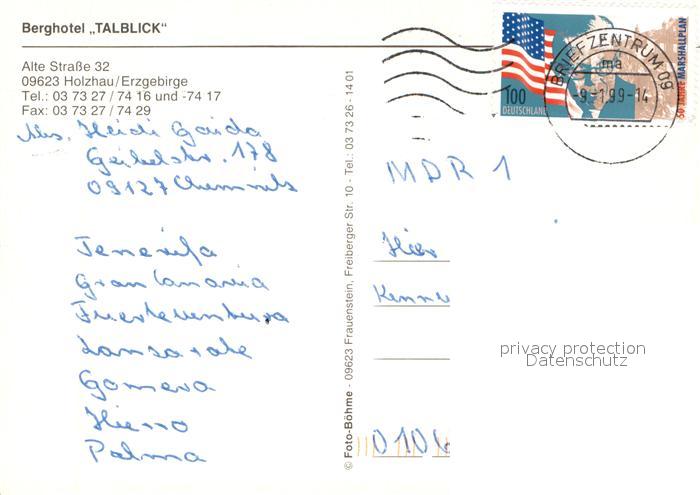 Berghotel „TALBLICK“
Alte Straße 32
09623 Holzhau/Erzgebirge
Tel.: 03 73 27 / 74 16 und -74 17
Fax: 03 73 27 / 74 29
Abs. Heidi Gaida
Geibelstr. 178
09127 Chemnitz
Tenerifa
Gran Canaria
Fuerteventura
Lansarote
Gomera
Hierro
Palma
© Foto-Böhme - 09623 Frauenstein, Freiberger Str. 10 - Tel.: 03 73 26 - 14 01
100
DEUTSCHLAND
50 JAHRE MARSHALLPLAN
BRIEFZENTRUM 09
ma
-9.-1.99-14
MDR 1
Hier
Kenn
privacy protection
Datenschutz
010